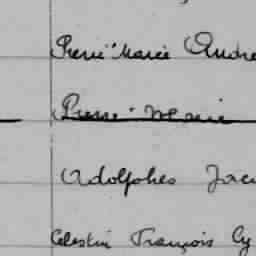 Pierre Marie André
Pierre Marie
Adolphes Jac
Célestin François Cy